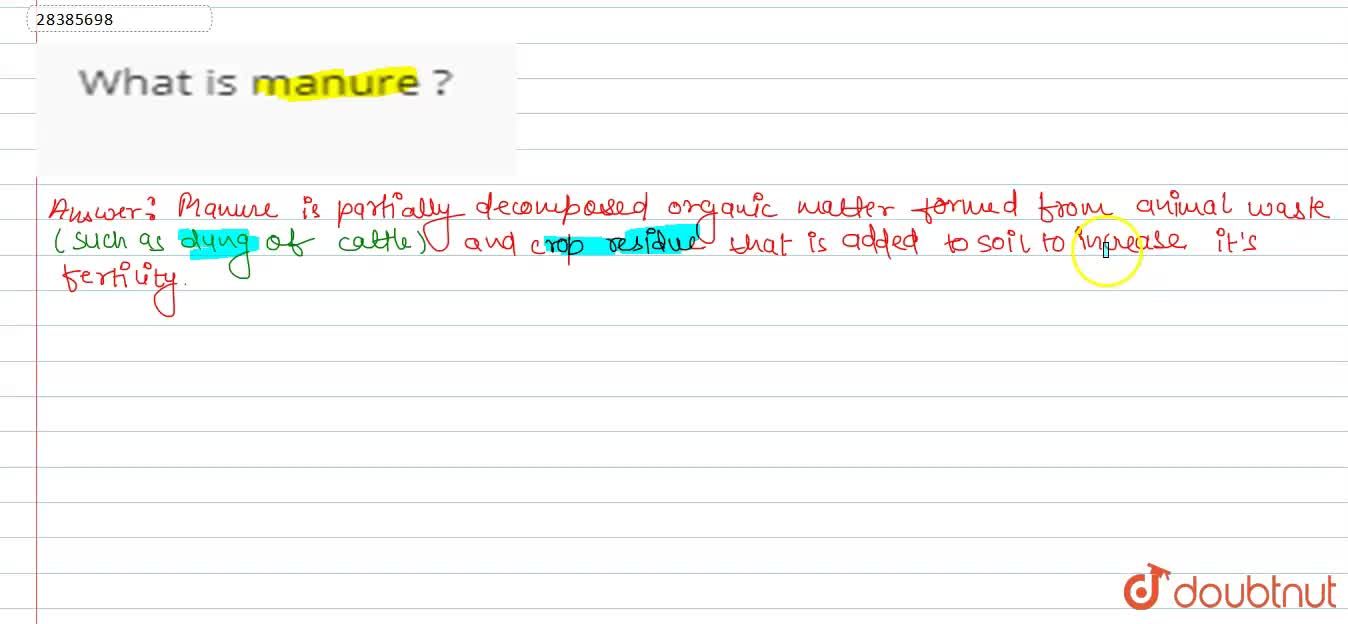 28385698
What is manure ?
Answer: Manure is partially decomposed organic matter formed from animal waste
(such as dung of cattle) and crop residue that is added to soil to increase it's
fertility.
doubtnut